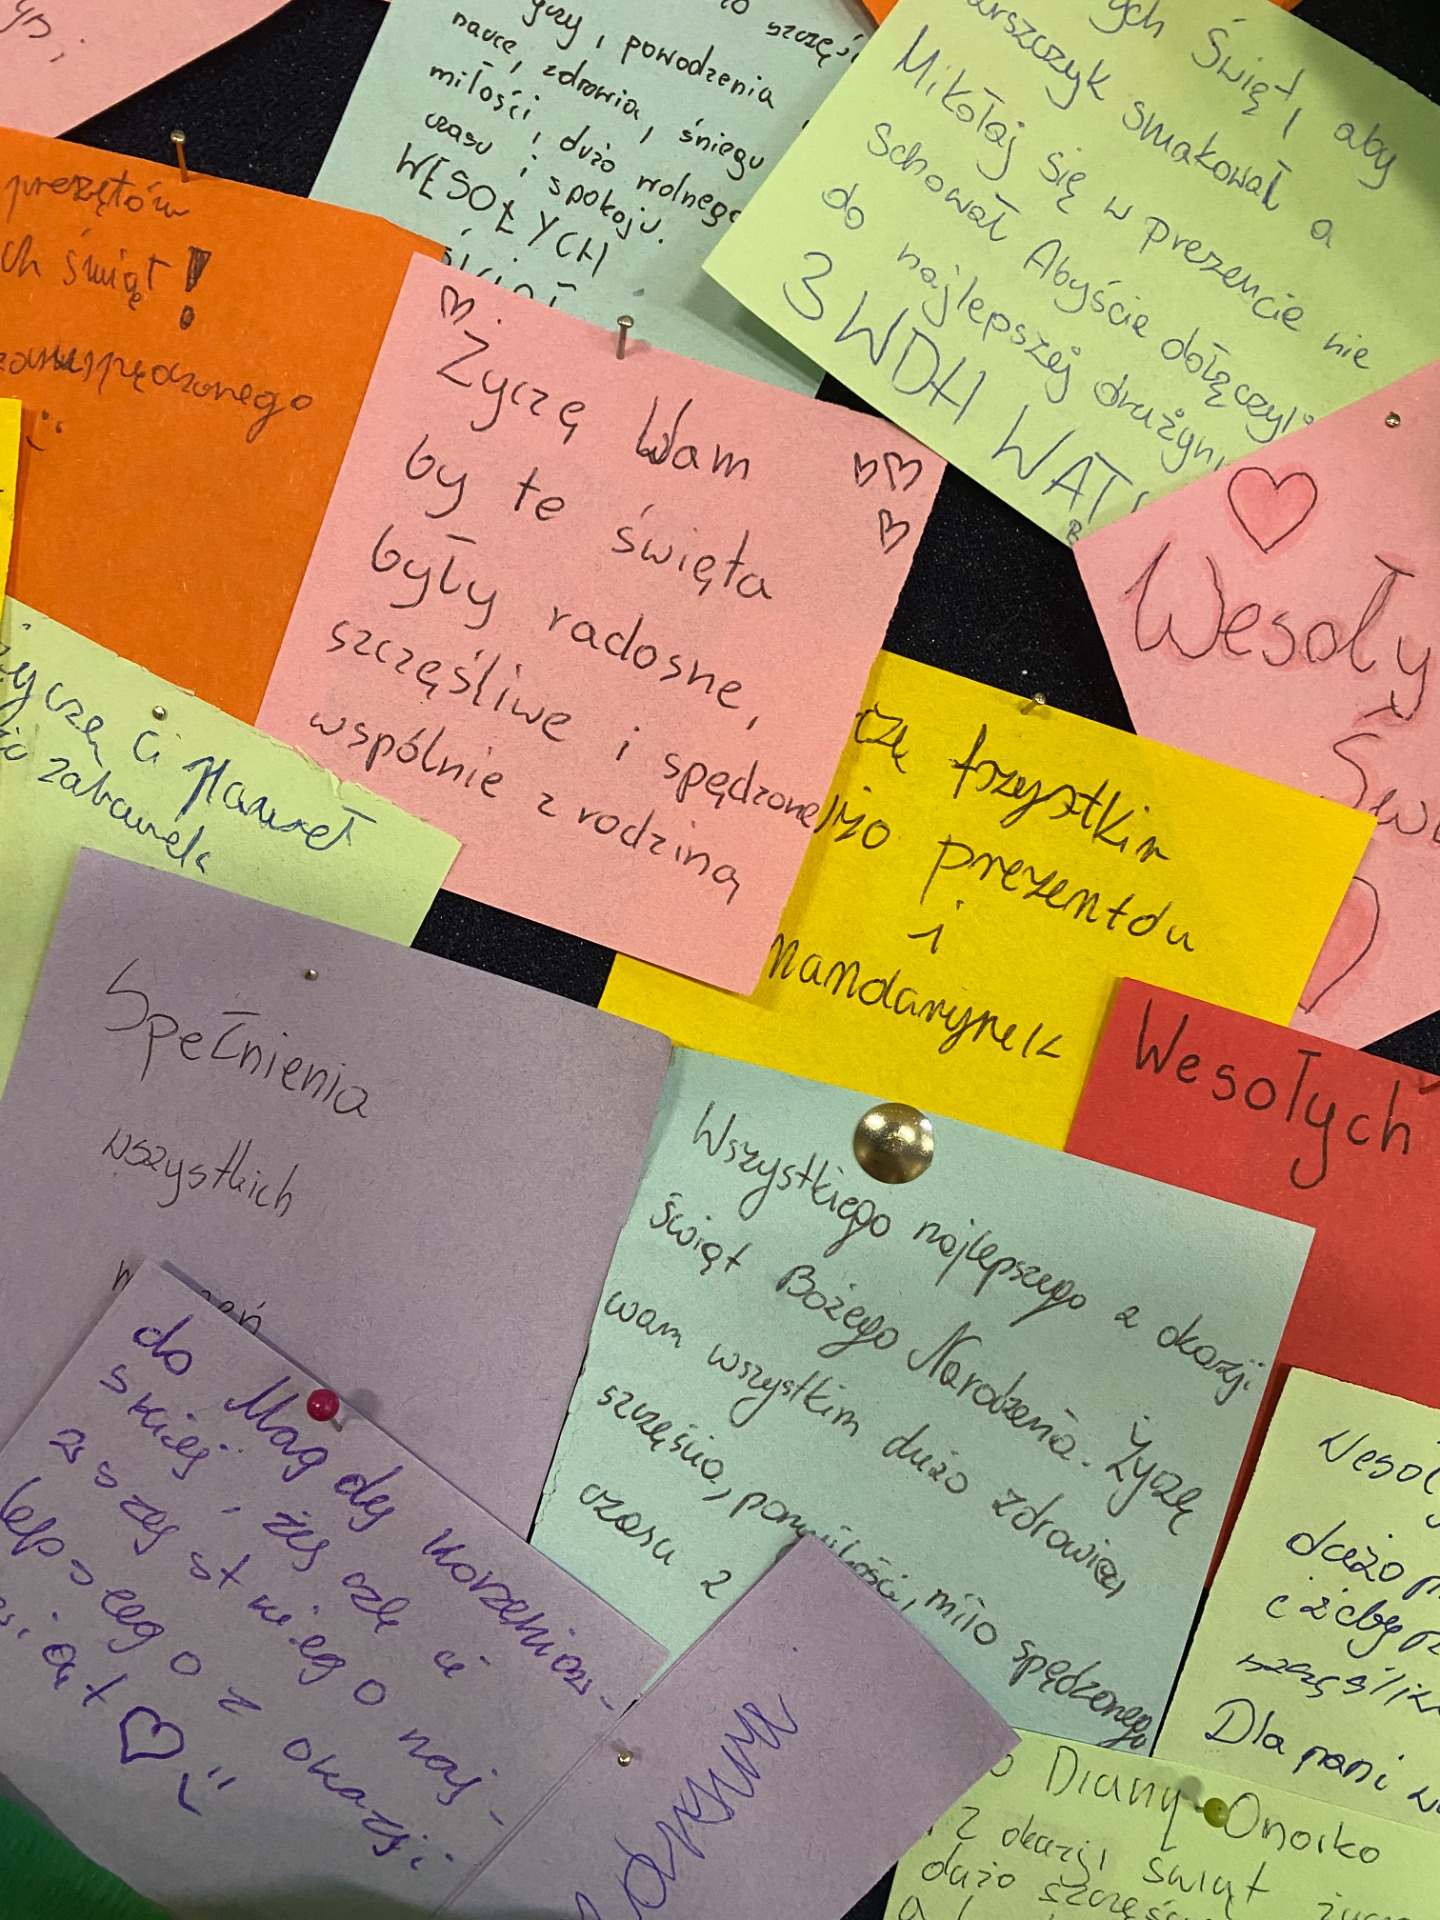 szczęś
powodzenia
nauce, zdrowia, śniegu
miłości, dużo wolnego
czasu i spokoju.
WESOŁYCH
ych Świąt, aby
barszczyk smakował a
Mikołaj się w prezencie nie
schował Abyście dołączyli
do najlepszej drużyny
3 WDH WAT
prezętów
ch świąt!
♡ Życzę Wam
by te święta ♡♡ ♡
były radosne,
szczęśliwe i spędzone
wspólnie z rodziną
♡
Wesoły
Życzę Ci
zabawek
wszystkim
prezentdu
i
mandarynek
Wesołych
Spełnienia
wszystkich
Wszystkiego najlepszego z okazji
świąt Bożego Narodzenia. Życzę
wam wszystkim dużo zdrowia,
szczęścia, miłości, miło spędzonego
czasu z
do Magdy Korzeniow-
skiej, życze ci
wszystkiego naj-
lepszego z okazji
świąt ♡
Wesoł
dużo
i żeby
Dla pani
Diany Onoiko
Z okazji świąt
dużo szczęś